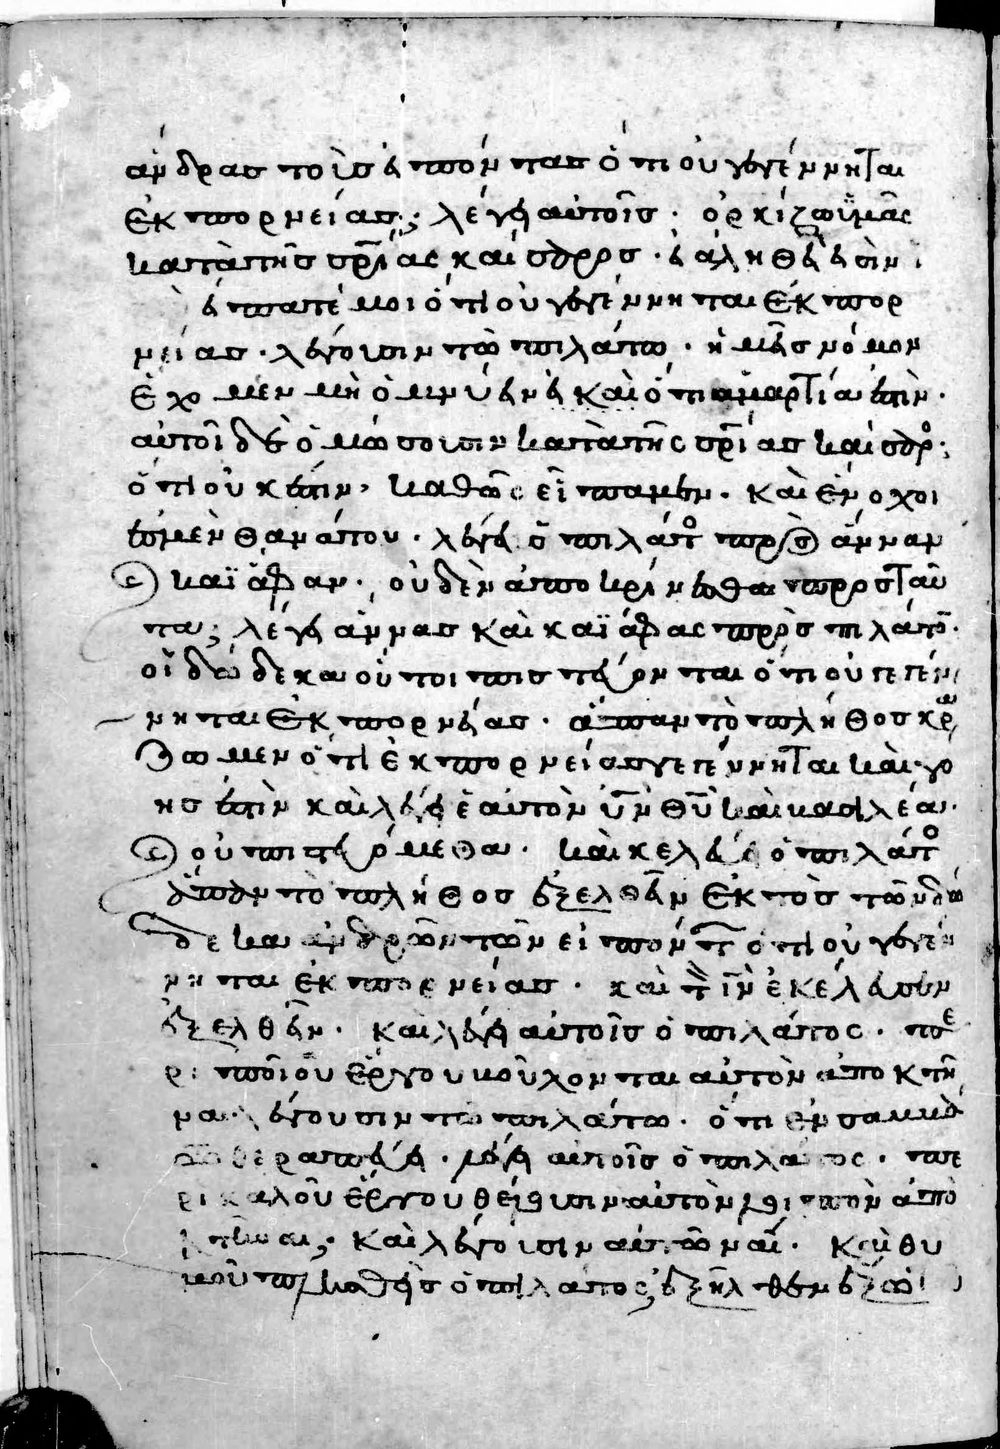 ἄνδρας τοὺς εἰπόντας ὅτι οὐ γεγέννηται
ἐκ πορνείας; λέγει αὐτοῖς· ὁρκίζω ὑμᾶς
κατὰ τῆς σρίας καίσαρος· εἰ ἀληθῆ ἐστιν
εἴπατέ μοι ὅτι οὐ γεγέννηται ἐκ πορ
νείας· λέγουσιν τῶ πιλάτω· ἡμεῖς νόμον
ἔχομεν μὴ ὀμνύειν ὅτι ἁμαρτία ἐστὶν·
αὐτοὶ δὲ ὀμόσουσιν κατὰ τῆς σρίας καίσαρ·
ὅτι οὐκ ἔστιν· καθὼς εἴπαμεν· καὶ ἔνοχοι
ἐσμὲν θανάτου· λέγει ὁ πιλάτος πρὸς ἄνναν
καὶ καϊάφαν· οὐδὲν ἀποκρίνεσθαι πρὸς ταῦ
τα; λέγει ἄννας καὶ καϊάφας πρὸς πιλάτον·
οἱ δώδεκα οὗτοι πιστεύονται ὅτι οὐ γεγέν
νηται ἐκ πορνείας· ἅπαν τὸ πλῆθος κρά
ζωμεν ὅτι ἐκ πορνείας γεγέννηται καὶ γό
ης ἐστὶν καὶ λέγει ἑαυτὸν ὑν θυ καὶ βασιλέα·
οὐ πιστευόμεθα· καὶ κελεύει ὁ πιλάτος
ἅπαν τὸ πλῆθος ἐξελθεῖν ἐκτὸς τῶν δώ
δεκα ἀνδρῶν τῶν εἰπόντων ὅτι οὐ γεγέν
νηται ἐκ πορνείας· καὶ τὸν ιν ἐκέλευσεν
ἐξελθεῖν· καὶ λέγει αὐτοῖς ὁ πιλάτος· πε
ρὶ ποίου ἔργου βούλονται αὐτὸν ἀποκτεῖ
ναι λέγουσιν τῶ πιλάτω· ὅτι ἐν σαββά
τω θεραπεύει· λέγει αὐτοῖς ὁ πιλάτος· πε
ρὶ καλοῦ ἔργου θέλουσιν αὐτὸν ἀπο
κτεῖναι; καὶ λέγουσιν αὐτῶ ναί· καὶ θυ
μοῦ πλησθεὶς ὁ πιλάτος, ἐξῆλθεν ἔξω